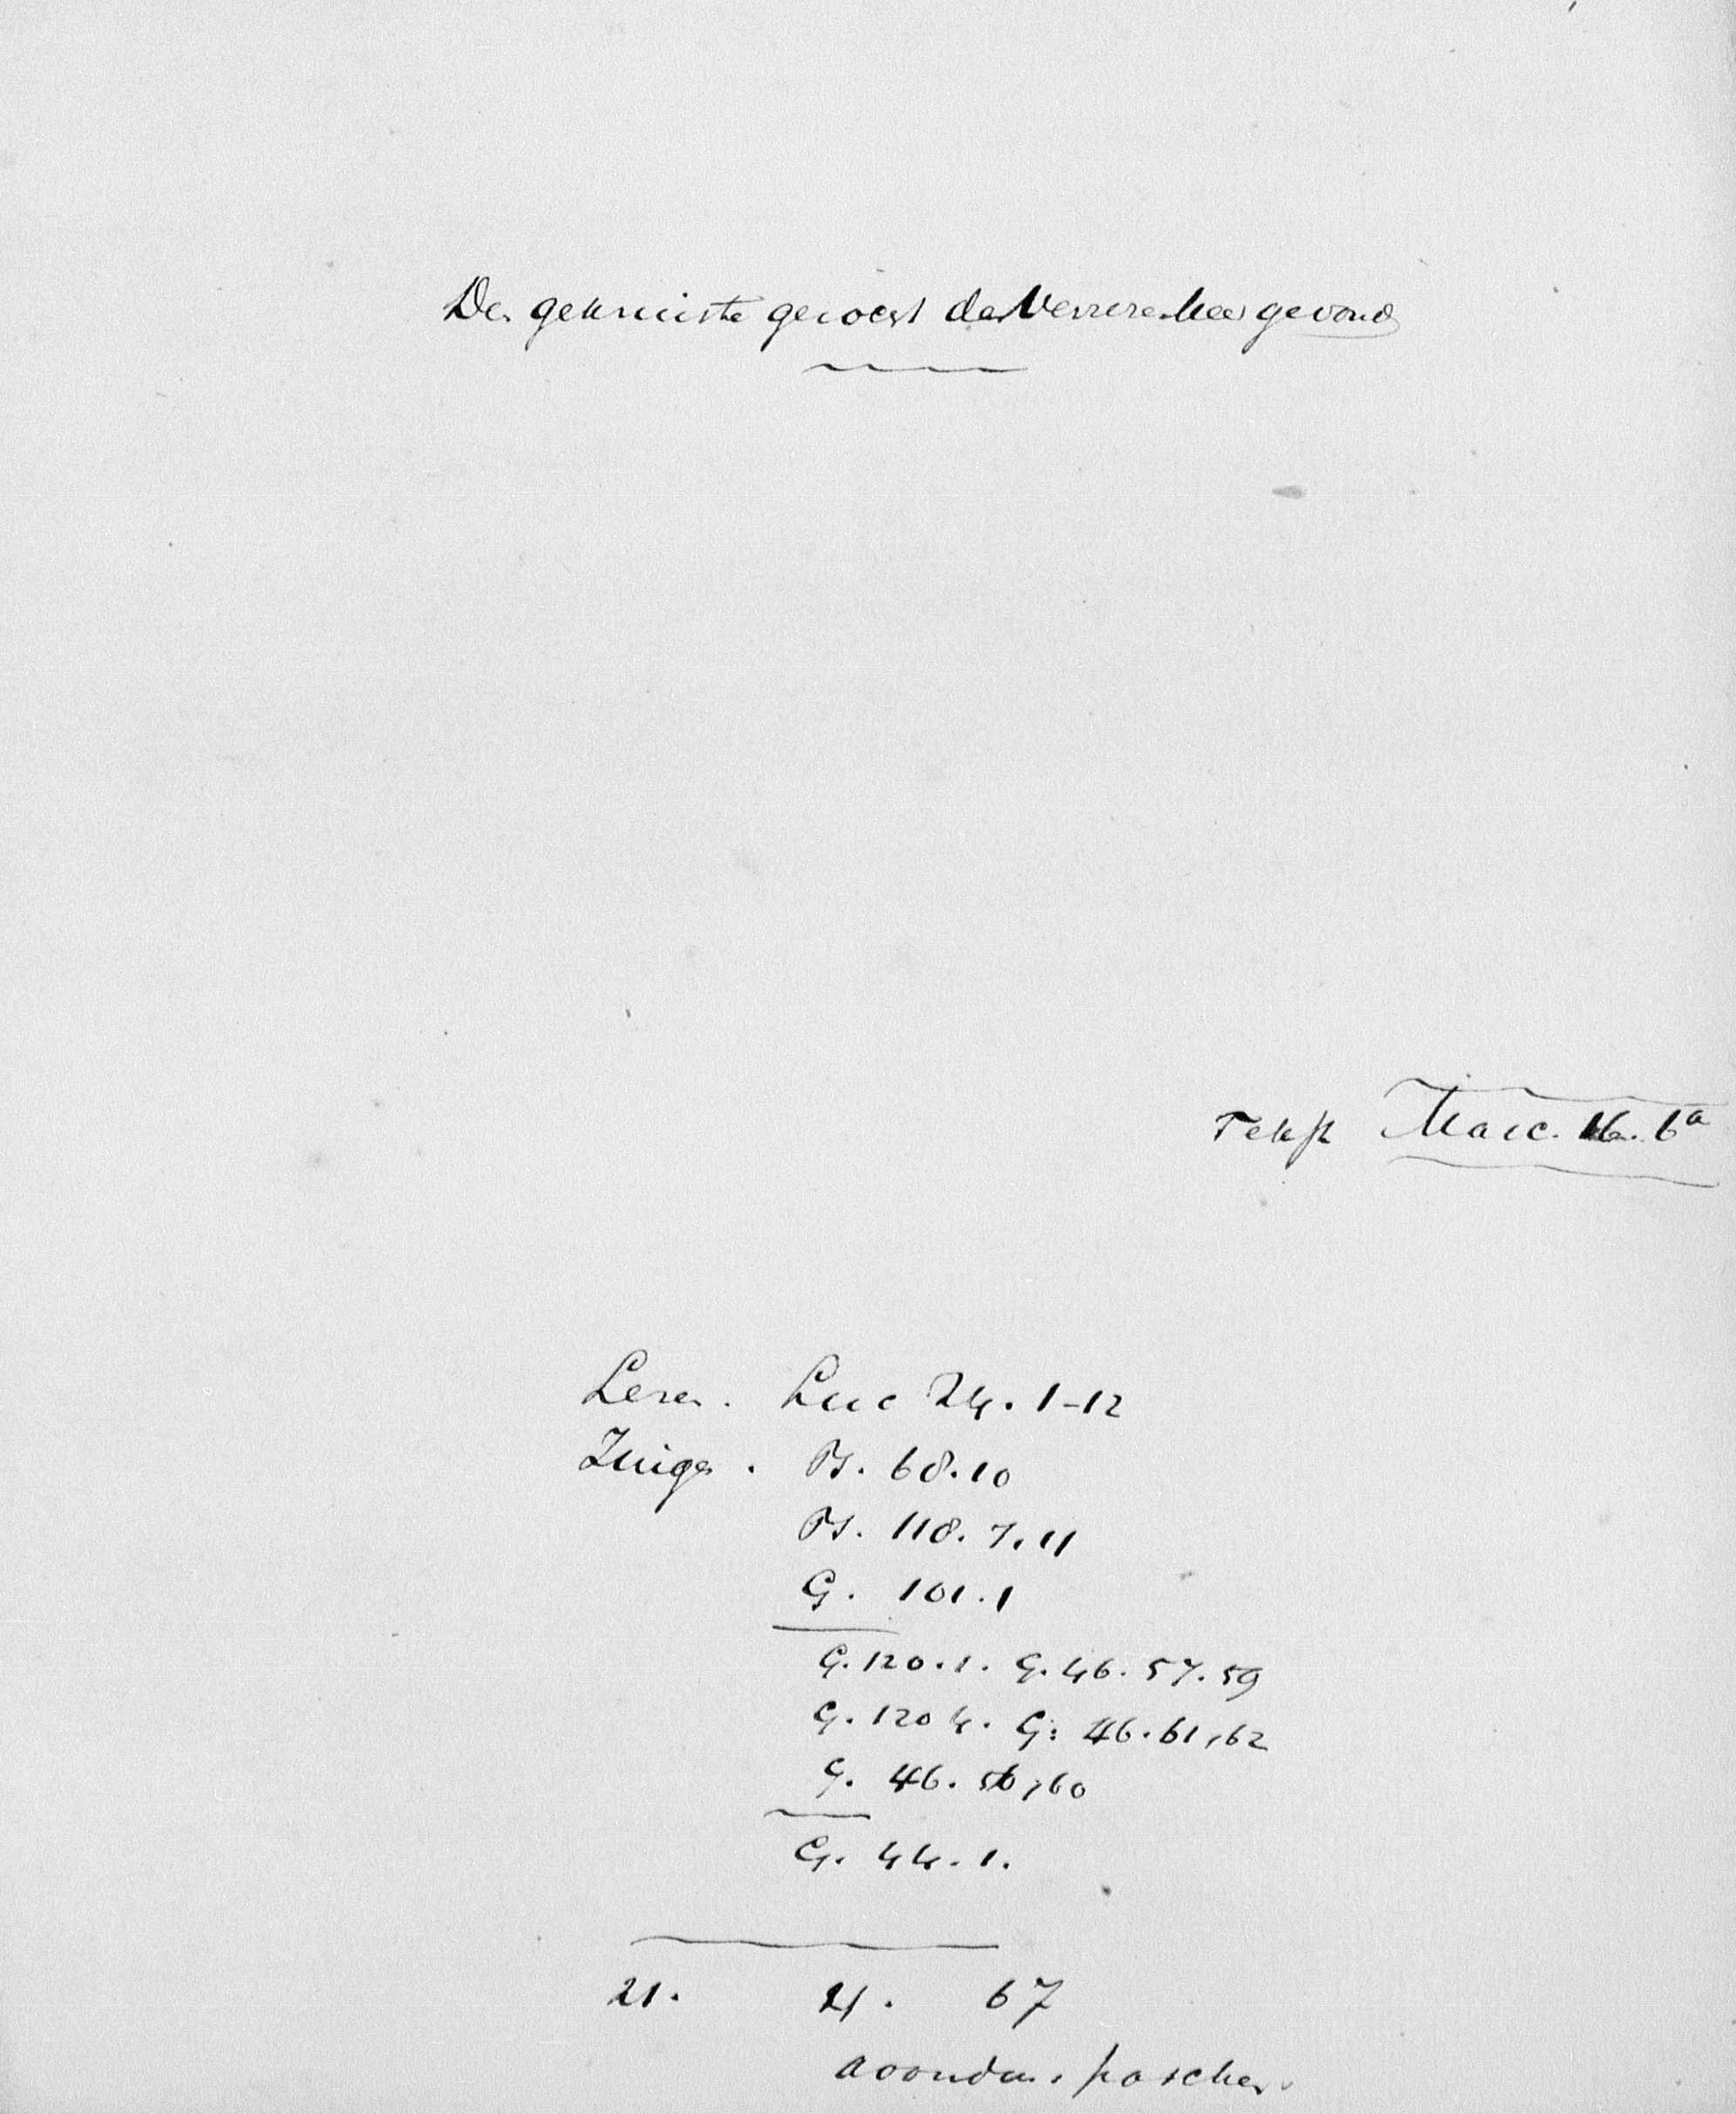 De gekruiste gezocht de Verrezene gevond
Tekst Marc. 16. 6a
Lezen. Luc 24. 1-12
Zingen. Ps. 68.10
Ps. 118. 7. 11
G. 101. 1
G. 120. 1. G. 46. 57. 59
G. 120 4. G: 46. 61, 62
G. 46. 56, 60
G. 44. 1.
21. 4. 67
avonds. paschen.